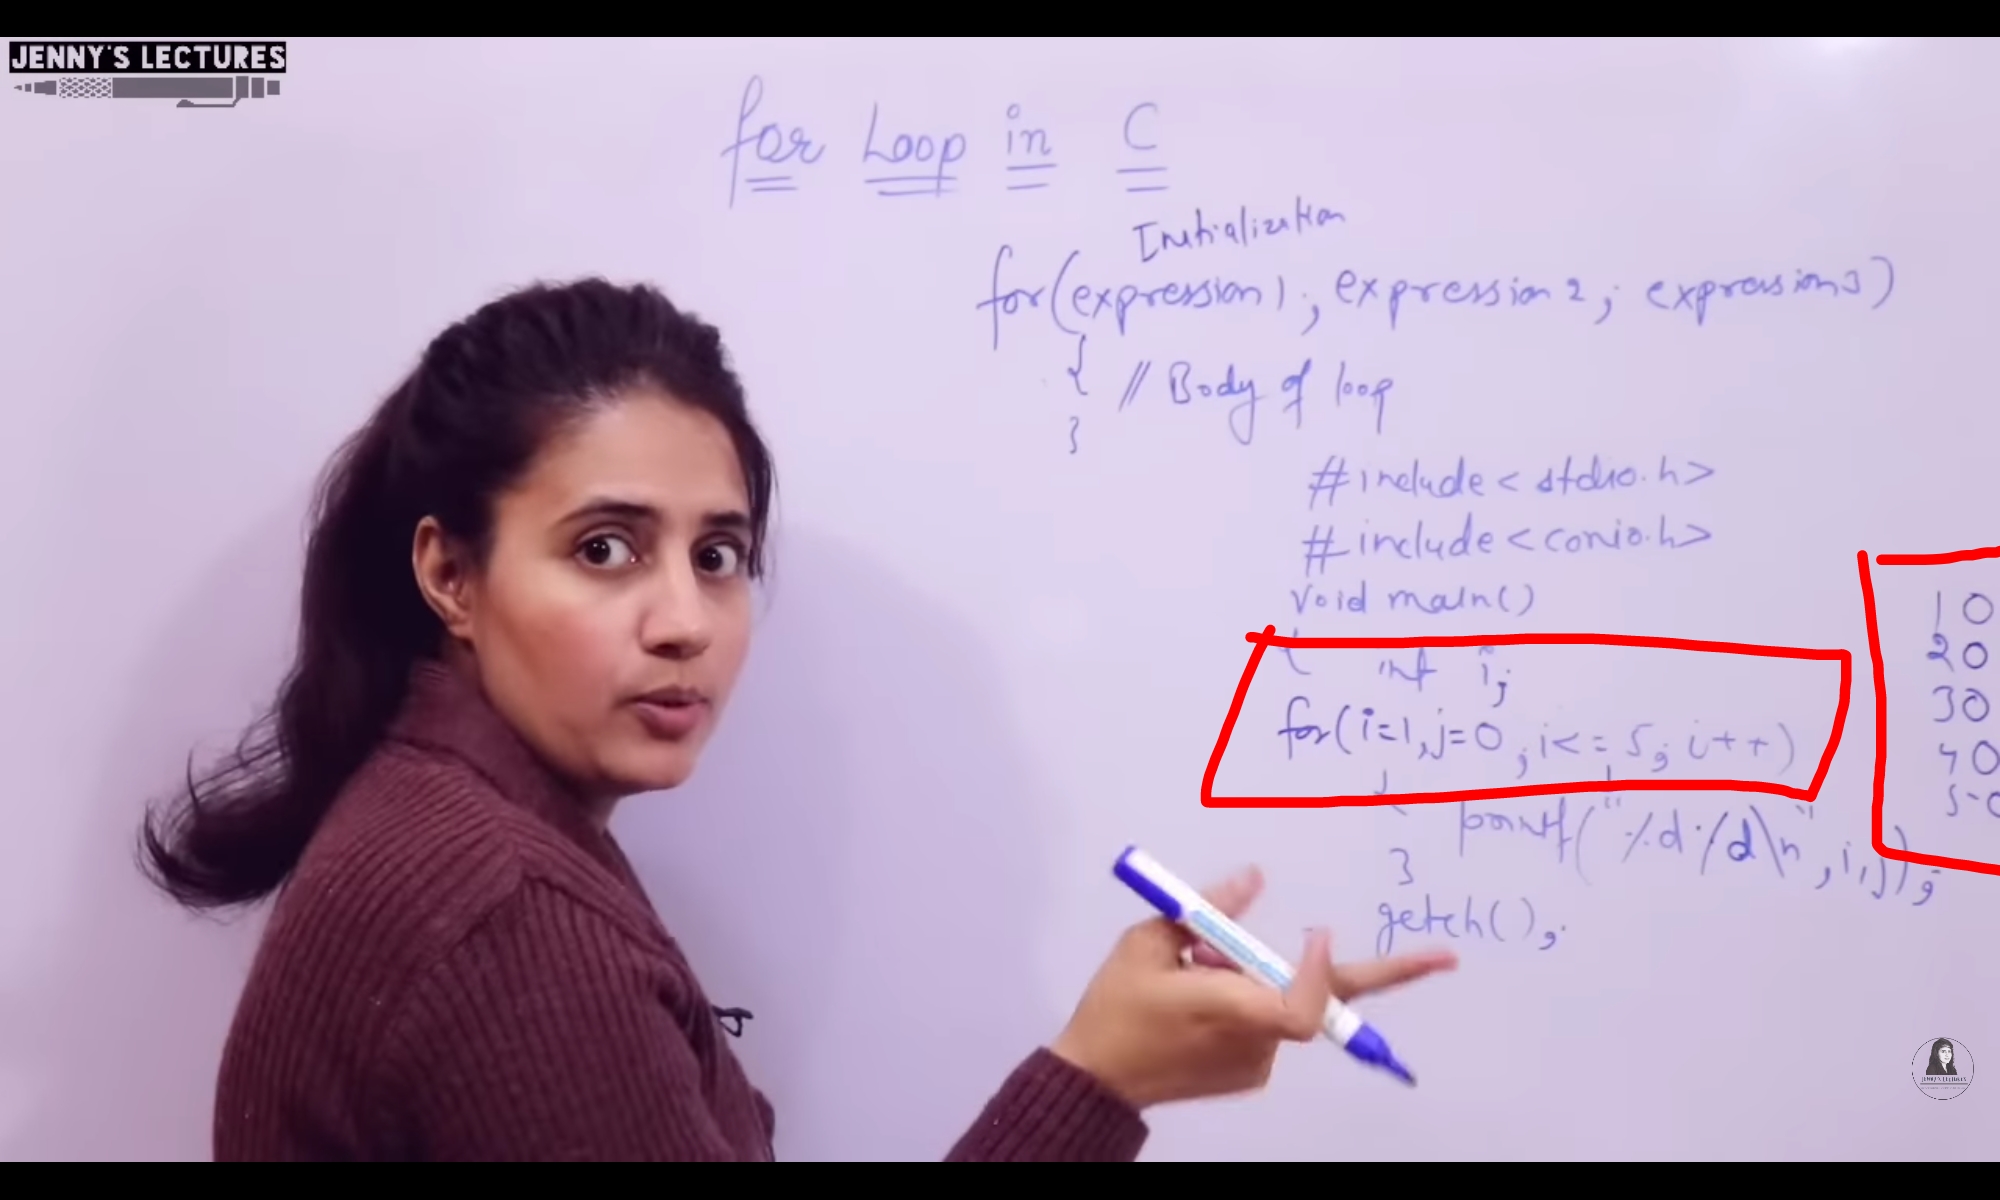 JENNY'S LECTURES
for Loop in C
Initialization
for(expression1; expression2; expression3)
{ // Body of loop
}
#include<stdio.h>
#include<conio.h>
void main()
{ int i;
for(i=1,j=0;i<=5;i++)
{ printf("%d%d\n",i,j);
}
getch();
10
20
30
40
50
JENNY'S LECTURES